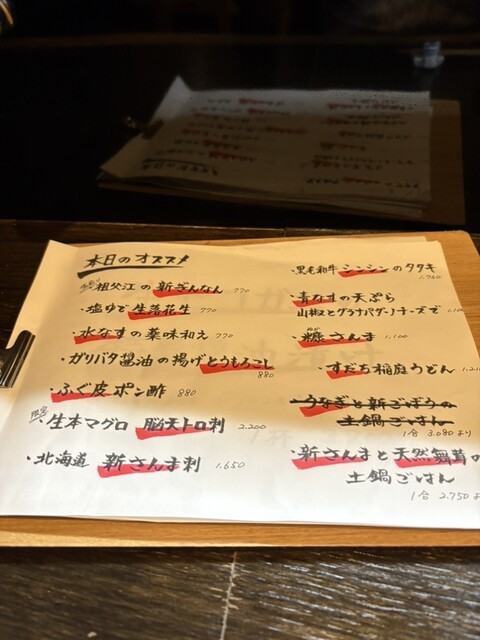 本日のオススメ
祖父江の新ぎんなん 770
・塩ゆで生落花生 770
・水なすの薬味和え 770
・ガリバタ醤油の揚げとうもろこし
880
・ふぐ皮ポン酢 880
限定
・生本マグロ 脳天トロ刺 2.200
・北海道 新さんま刺 1.650
・黒毛和牛シンシンのタタキ
1.760
・青なすの天ぷら
山椒とグラナパダーノチーズで 1.100
・糠さんま 1.100
・すだち稲庭うどん 1.210
・うなぎと新ごぼうの
土鍋ごはん
1合 3.080より
・新さんまと天然舞茸の
土鍋ごはん
1合 2.750よ